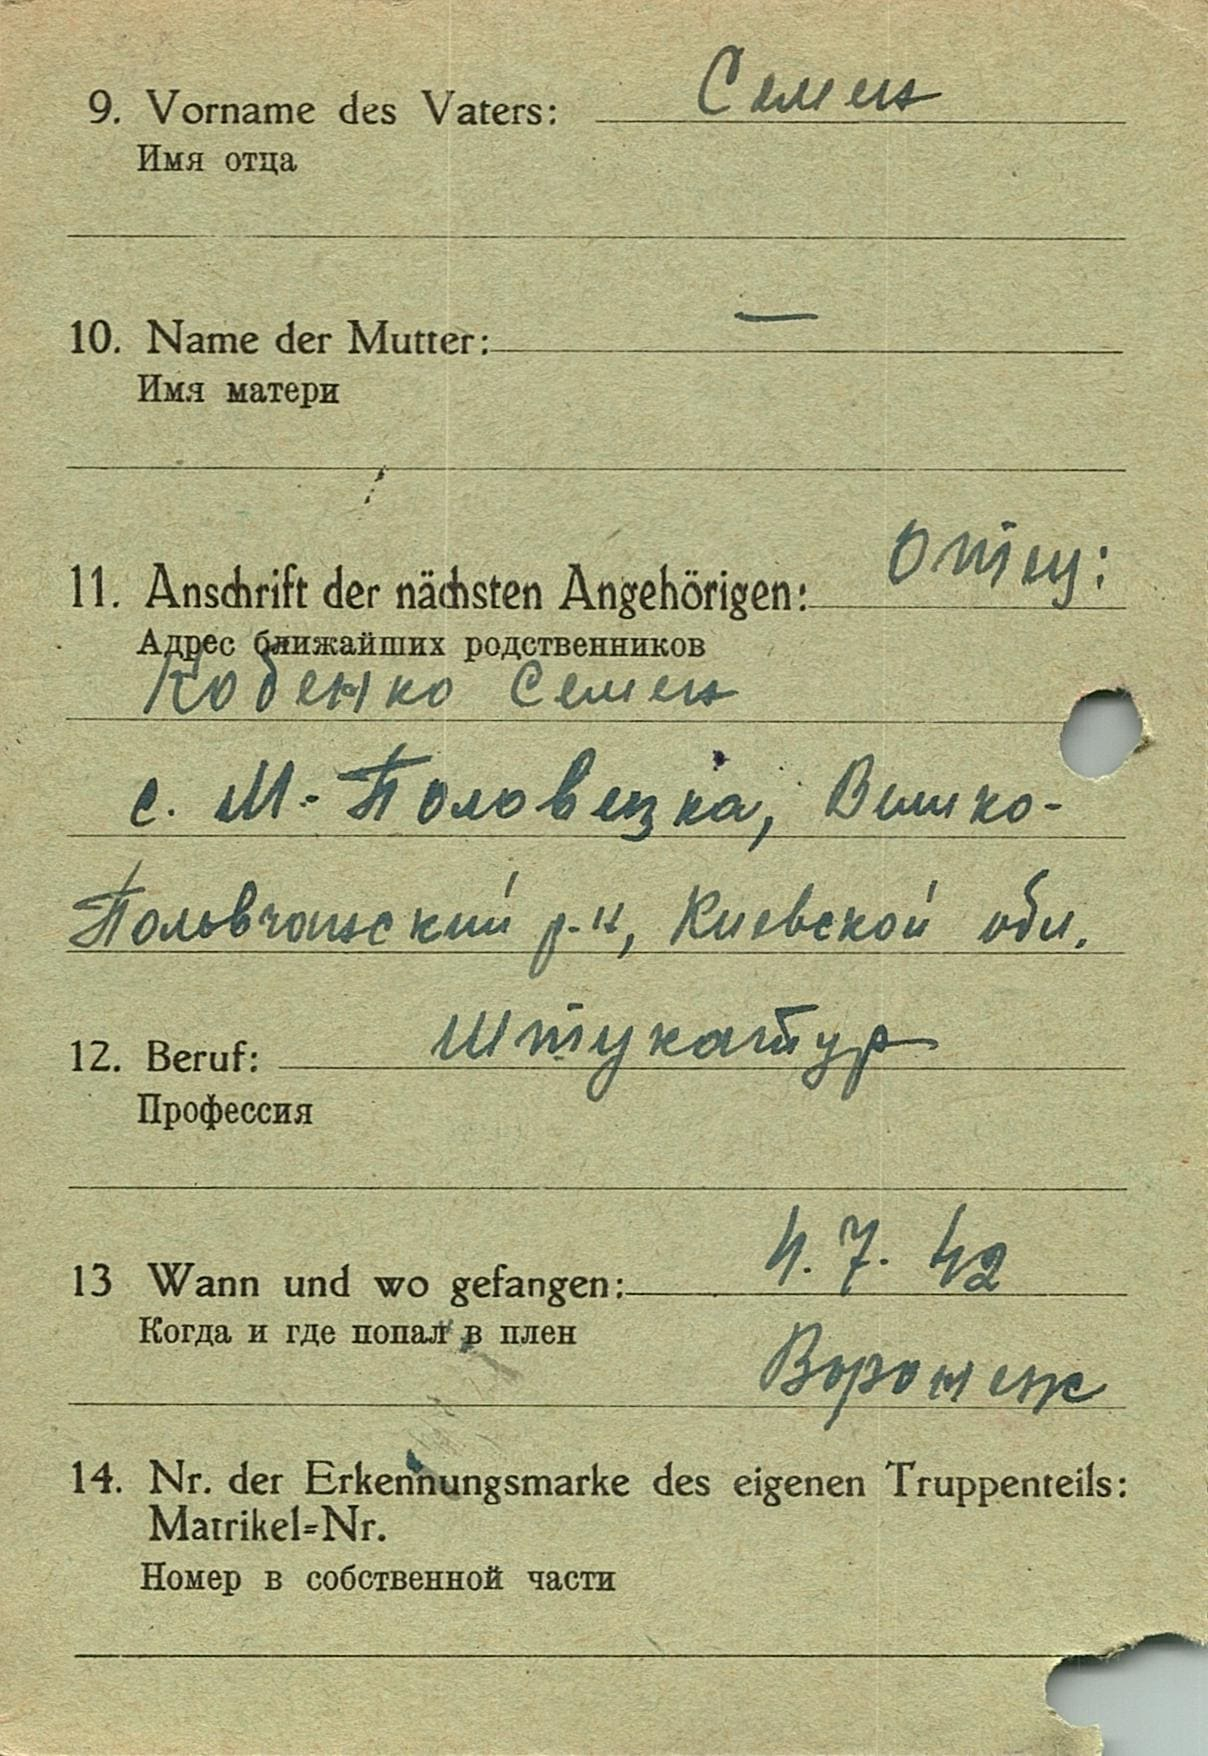 9. Vorname des Vaters: Семен
Имя отца
10. Name der Mutter: —
Имя матери
11. Anschrift der nächsten Angehörigen: Отцу:
Адрес ближайших родственников
Кобенко Семен
с. М-Половецка, Велико-
Польвчанский р-н, Киевской обл.
12. Beruf: Штукатур
Профессия
13 Wann und wo gefangen: 4.7.42
Когда и где попал в плен
Воронеж
14. Nr. der Erkennungsmarke des eigenen Truppenteils:
Matrikel=Nr.
Номер в собственной части